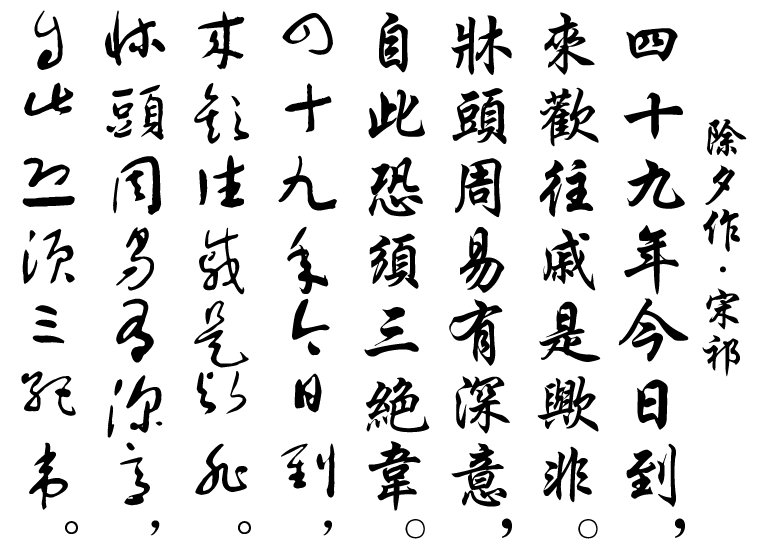 除夕作·宋祁
四十九年今日到，
來歡往戚是歟非。
牀頭周易有深意，
自此恐須三絕韋。
四十九年今日到，
來歡往戚是歟非。
牀頭周易有深意，
自此恐須三絕韋。